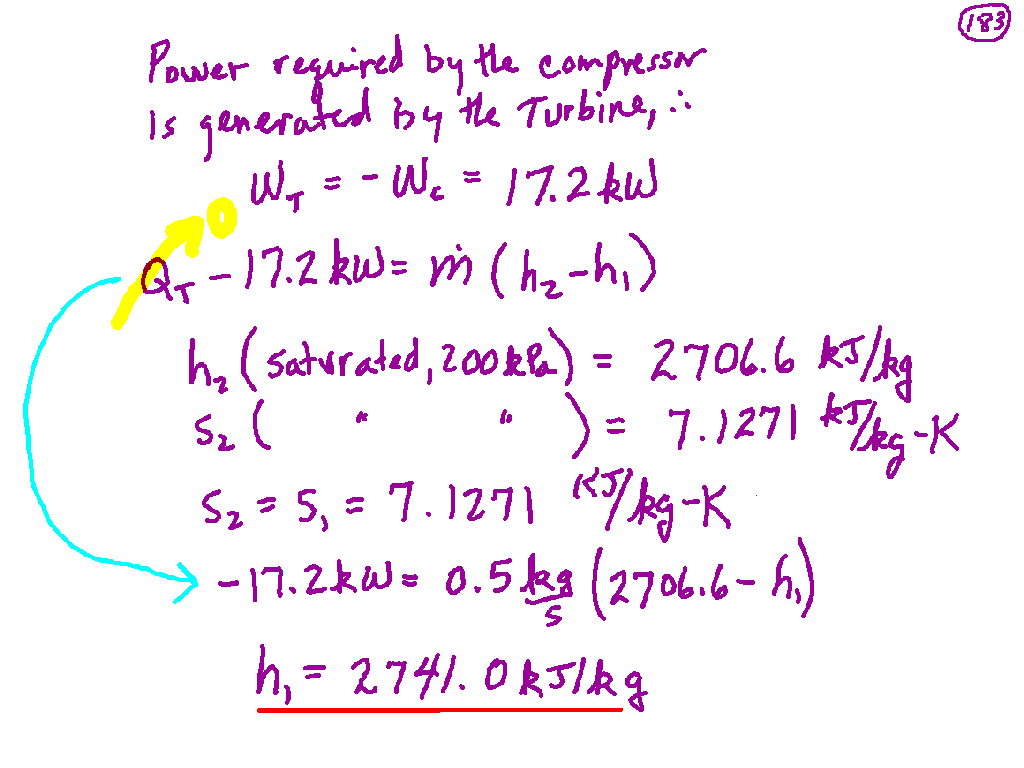 183
Power required by the compressor
Is generated by the Turbine, ∴
W_T = - W_c = 17.2 kW
0
Q_T - 17.2 kW = ṁ (h_2 - h_1)
h_2 (saturated, 200 kPa) = 2706.6 kJ/kg
s_2 ( " " ) = 7.1271 kJ/kg-K
s_2 = s_1 = 7.1271 KJ/kg-K
-17.2 kW = 0.5 kg/s (2706.6 - h_1)
h_1 = 2741.0 kJ/kg